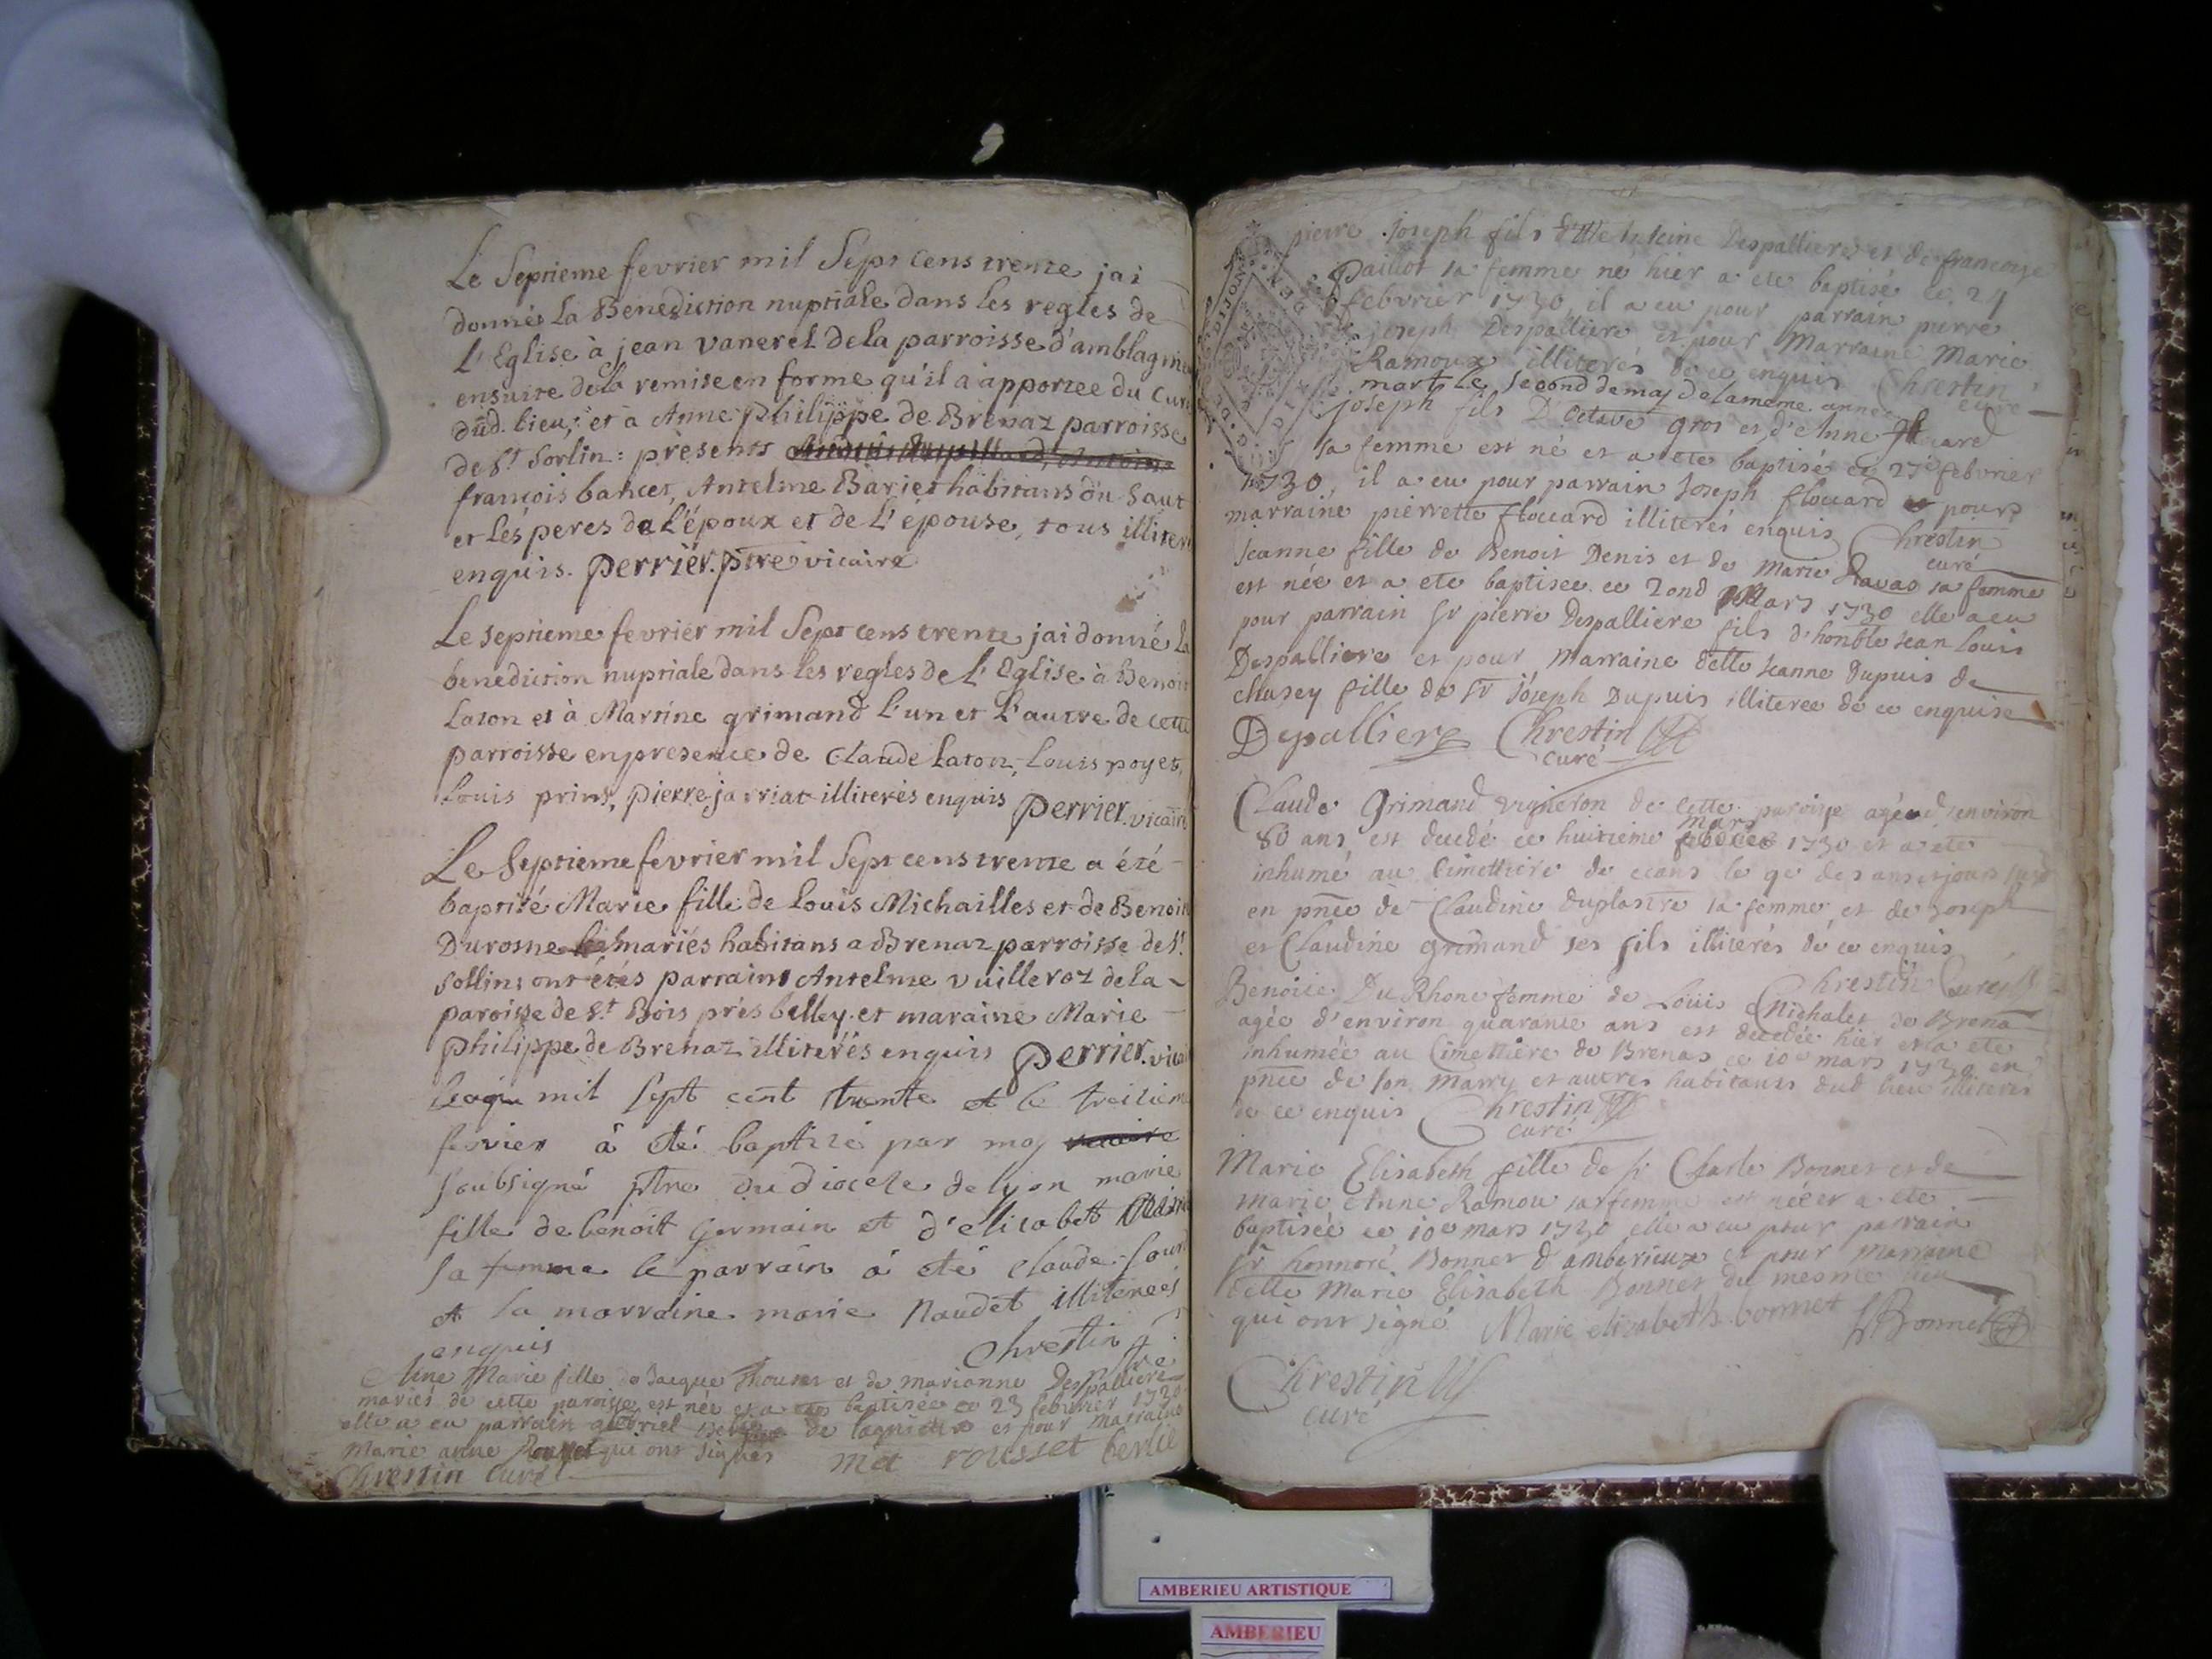 Le Septieme fevrier mil Sept cens trente jai
donné La Benediction nuptiale dans les regles de
L'Eglise à jean vanerel de la parroisse d'amblagnie
ensuite de la remise en forme qu'il a apportee du Curé
dud. lieu; et à Anne philippe de Brenaz parroisse
de St Sorlin: presents
françois bancet, Antelme Bariet habitans du Saut
et les peres de l'époux et de l'épouse, tous illiter
enquis. perrier. ptre vicaire
Le septieme fevrier mil Sept cens trente jai donné la
benediction nuptiale dans les regles de l'Eglise à Benoit
Laton et à Martine grimand l'un et l'autre de cette
parroisse en presence de Claude Laton, Louis poyet,
Louis prins, pierre jarriat illiterés enquis perrier. vicaire
Le Septieme fevrier mil Sept cens trente a été
baptisé Marie fille de Louis Michailles et de Benoit
Durosne mariés habitans a Brenaz parroisse de St
Sollins ont étés parrains Antelme vuilleroz de la
paroisse de St Bois prés belley. et maraine Marie
philippe de Brenaz illiterés enquis perrier. vicai
mil sept cent trente et le treiziem
fevrier à été baptizé par moy vicaire
soubsigné ptre du dioceze de lyon marie
fille de benoit germain et d'elizabett
sa femme le parrain à été claude
et la marraine marie Naudet illiterees
enquis chrestin
Anne Marie fille de Jacque Rousset et de marianne Despalliere
mariés de cette paroisse est née et a ete baptisée ce 23 febvrier 1730
elle a eu parrain gabriel de lagnieux et pour marraine
Marie anne Rousset qui ont signés Met rousset berlie
Chrestin Curé
pierre Joseph fils d'Antoine Despalliere et de françoise
Paillot sa femme né hier a ete baptisé ce 24
febvrier 1730, il a eu pour parrain pierre
Joseph Despalliere et pour Marraine Marie
Ramoux illiterés de ce enquis Chrestin
curé
mort le second de may de la meme année
joseph fils D'Octave gros et d'Anne flouard
sa femme est né et a ete baptisé ce 27e febvrier
1730, il a eu pour parrain Joseph flouard et pour
marraine pierrette flouard illiterés enquis Chrestin
curé
Jeanne fille de Benoit Denis et de Marie Ravas sa femme
est née et a ete baptisee ce 2ond Mars 1730 elle a eu
pour parrain Sr pierre Despalliere fils d'honble Jean Louis
Despalliere et pour Marraine delle Jeanne Dupuis de
Chasey fille de Sr Joseph Dupuis illiteree de ce enquise
Depalliere Chrestin
curé
Claude Grimand vigneron de cette paroisse agé d'environ
mars
80 ans est decedé ce huitieme 1730 et a ete
inhumé au Cimettiere de ceans le 9e des ans et jours susd
en pnce de Claudine duplastre sa femme et de Joseph
et Claudine grimand ses fils illiterés de ce enquis
Chrestin Curé
Benoite Du Rhone femme de Louis Michalet de Brena
agée d'environ quarante ans est decedée hier et a ete
inhumée au Cimettiere de Brenas ce 10e mars 1730 en
pnce de son marry et autres habitants dud lieu illiteres
de ce enquis Chrestin
curé
Marie Elisabeth fille de Sr Charle Bonnet et de
marie Anne Ramou sa femme est née et a ete
baptisée ce 10e mars 1730 elle a eu pour parrain
Sr honnoré Bonnet d'amberieux et pour marraine
delle Marie Elisabeth Bonnet du mesme lieu
qui ont signé Marie elisabeth bonnet Bonnet
Chrestin
curé
AMBERIEU ARTISTIQUE
AMBERIEU